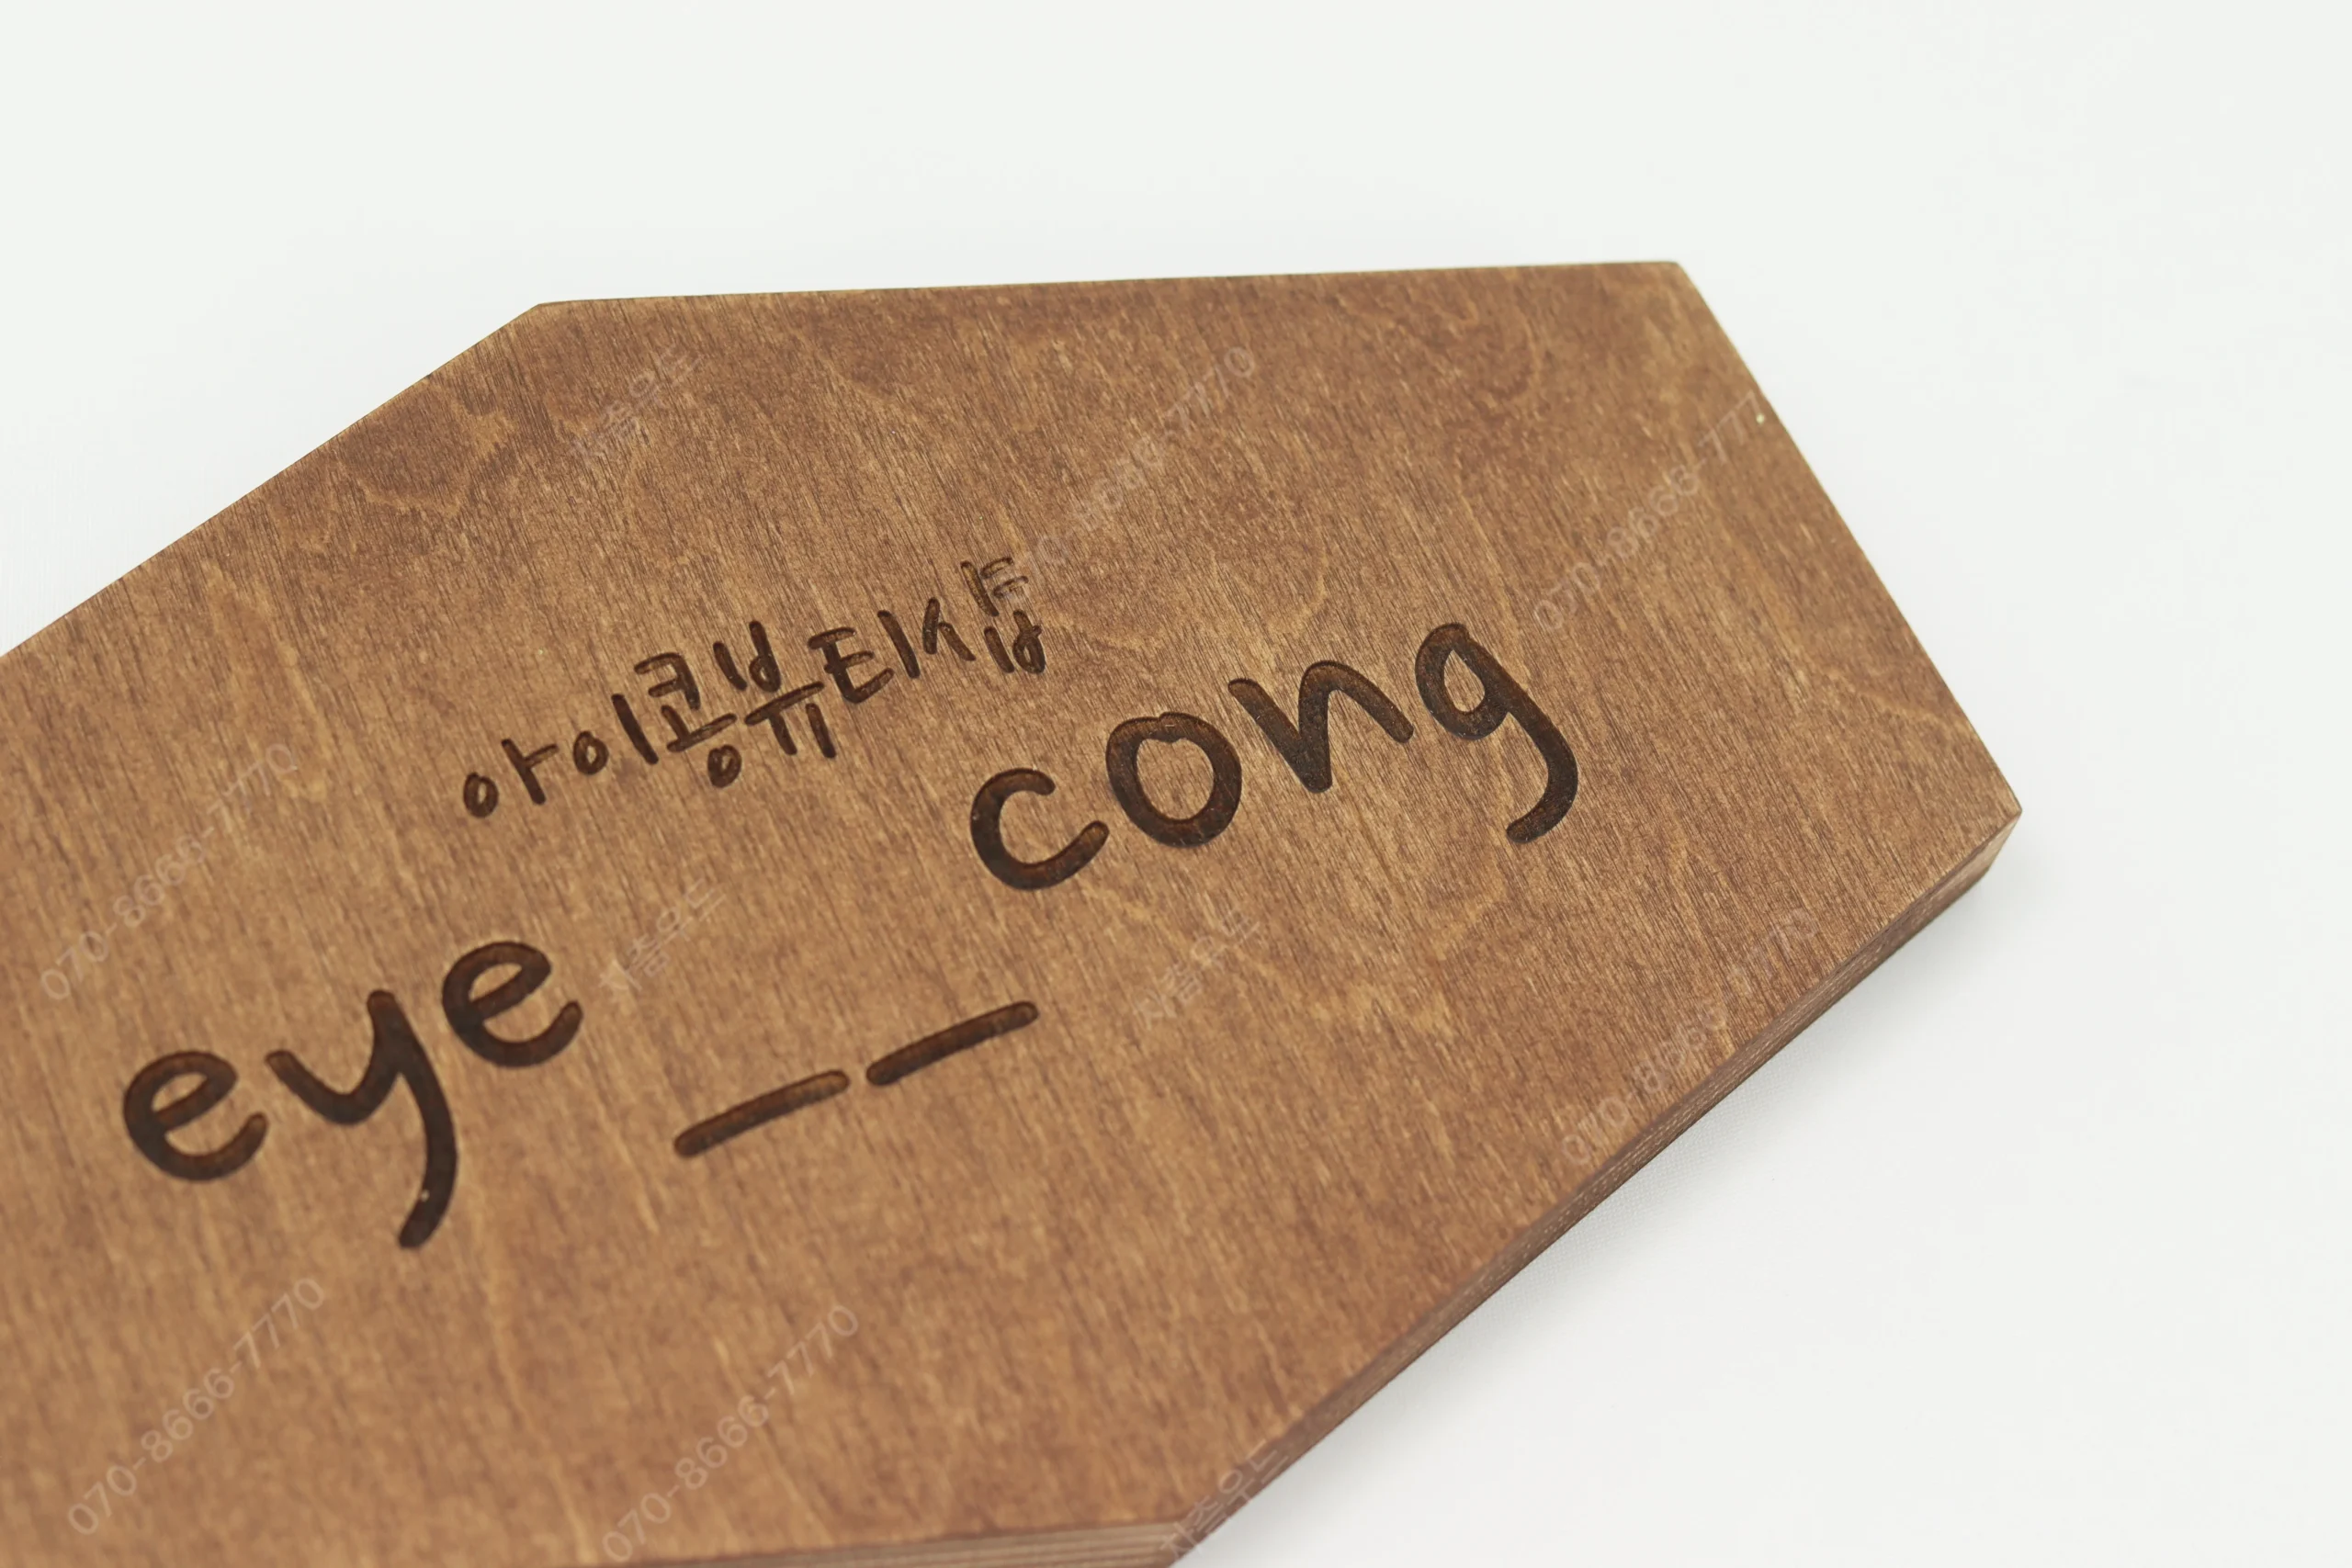 아이콩뷰티샵
eye__cong
070-8666-7770
070-8666-7770
070-8666-7770
070-8666-7770
070-8666-7770
070-8666-7770